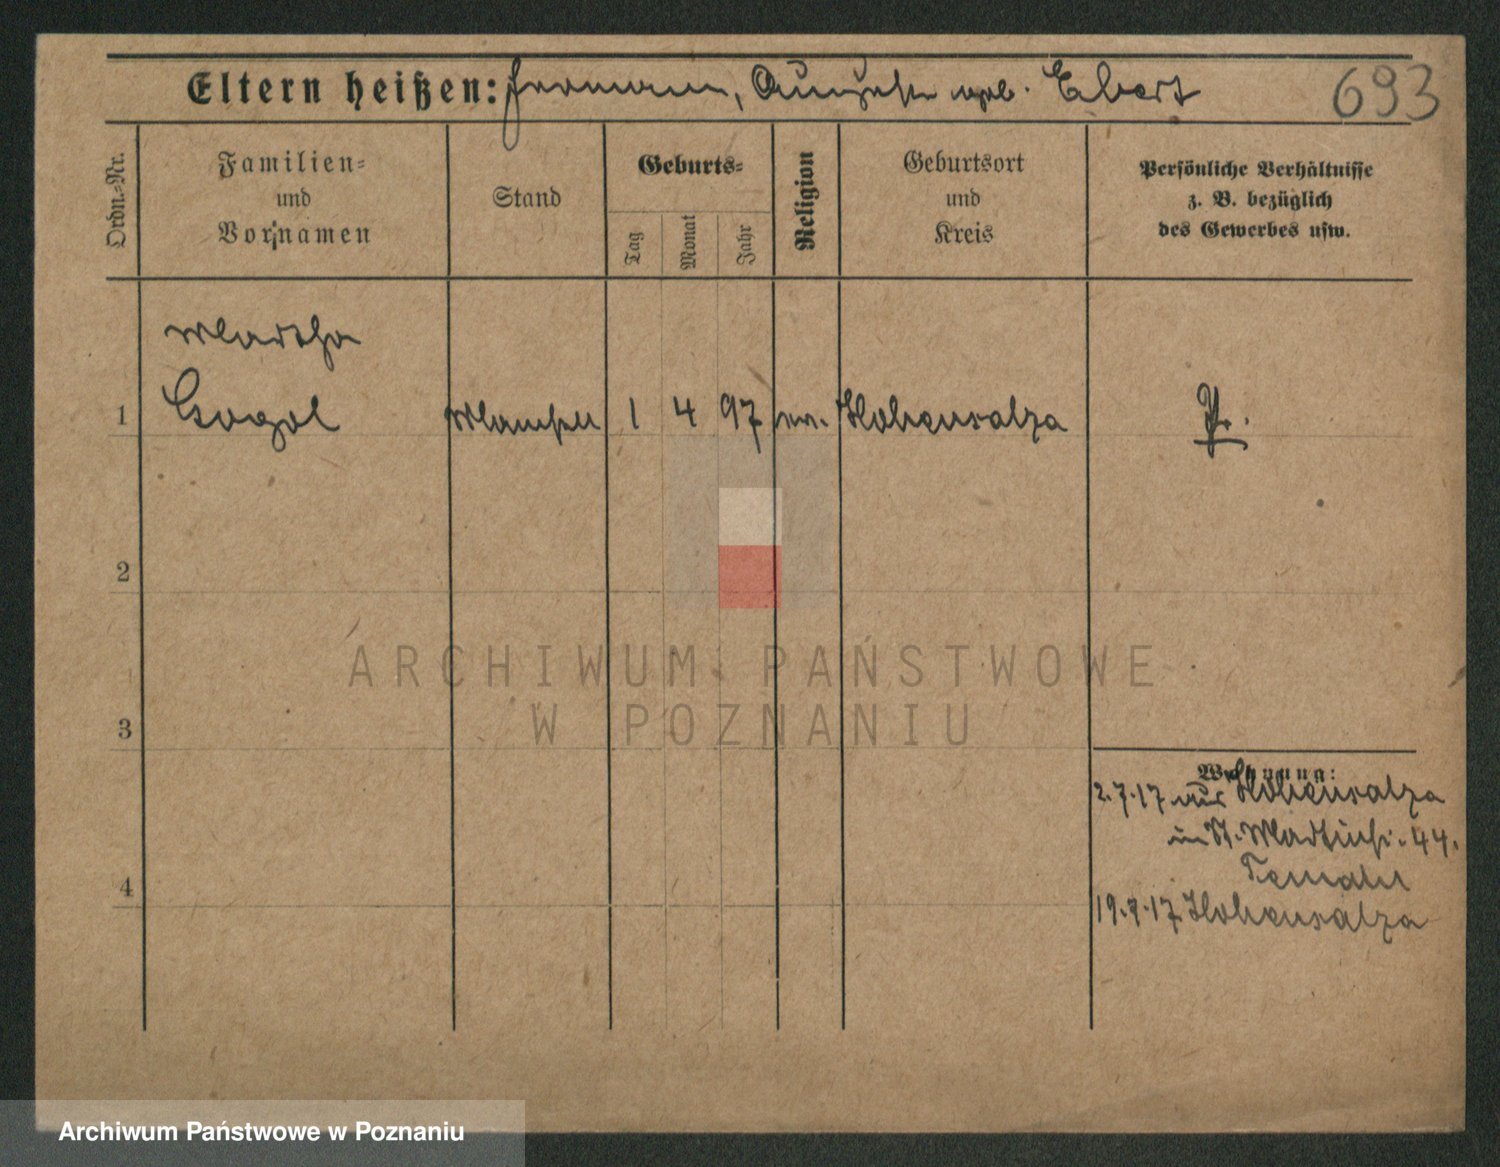 Eltern heißen: Hermann, Auguste geb. Ebert
693
Ordn.-Nr.
Familien-
und
Vornamen
Stand
Geburts-
Tag
Monat
Jahr
Religion
Geburtsort
und
Kreis
Persönliche Verhältnisse
z. B. bezüglich
des Gewerbes usw.
Martha
1 Gogol Mamsell 1 4 97 ev. Hohensalza Pr.
2
3
4
Wohnung:
2.7.17 aus Hohensalza
in St. Martinstr. 44.
19.7.17 Hohensalza
ARCHIWUM PAŃSTWOWE
W POZNANIU
Archiwum Państwowe w Poznaniu